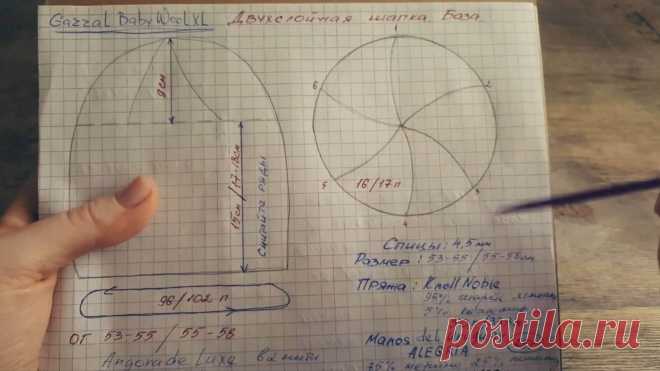 Gazzal Baby Wool XL
Двухслойная шапка. База
9 см
15см / 17-18см
Считайте ряды
96/102 п
ОГ 53-55 / 55-58
Angora de Luxe в 2 нити
1
2
3
4
5
6
16/17 п
Спицы: 4,5 мм
Размер: 53-55 / 55-58
Пряжа: Knoll Noble
95%
5%
Manos del
ALEGRIA
75% 25%
postila.ru